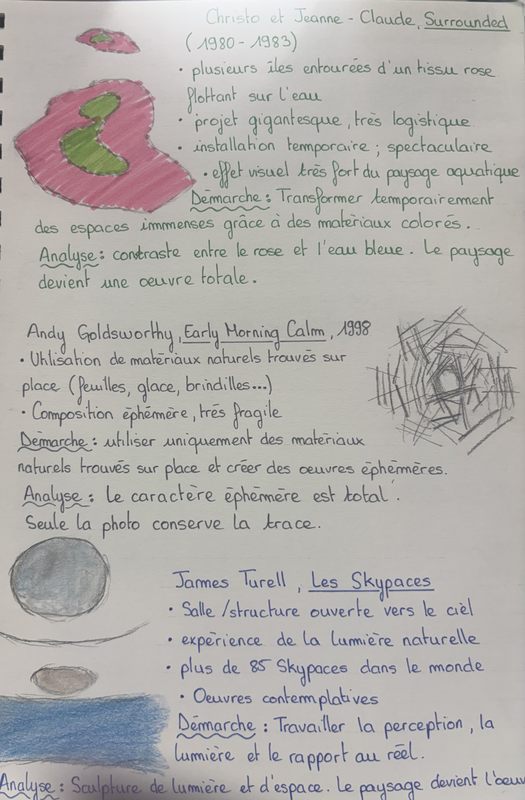 Christo et Jeanne-Claude, Surrounded
(1980-1983)
• plusieurs îles entourées d'un tissu rose
flottant sur l'eau
• projet gigantesque, très logistique
• installation temporaire ; spectaculaire
• effet visuel très fort du paysage aquatique
Démarche : Transformer temporairement
des espaces immenses grâce à des matériaux colorés.
Analyse : contraste entre le rose et l'eau bleue. Le paysage
devient une oeuvre totale.
Andy Goldsworthy, Early Morning Calm, 1998
• Utilisation de matériaux naturels trouvés sur
place (feuilles, glace, brindilles...)
• Composition éphémère, très fragile
Démarche : utiliser uniquement des matériaux
naturels trouvés sur place et créer des oeuvres éphémères.
Analyse : Le caractère éphémère est total.
Seule la photo conserve la trace.
James Turell, Les Skypaces
• Salle / structure ouverte vers le ciel
• expérience de la lumière naturelle
• plus de 85 Skypaces dans le monde
• Oeuvres contemplatives
Démarche : Travailler la perception, la
lumière et le rapport au réel.
Analyse : Sculpture de lumière et d'espace. Le paysage devient l'oeuv